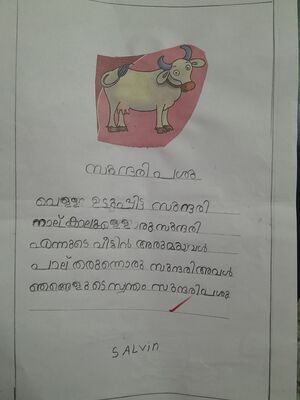 സുന്ദരി പശു
വെള്ള ഉടുപ്പിട്ട സുന്ദരി
നാല് കാലുള്ളൊരു സുന്ദരി
എന്നുടെ വീട്ടിൻ അരുമയവൾ
പാല് തരുന്നൊരു സുന്ദരി അവൾ
ഞങ്ങളുടെ സ്വന്തം സുന്ദരി പശു
SALVIN